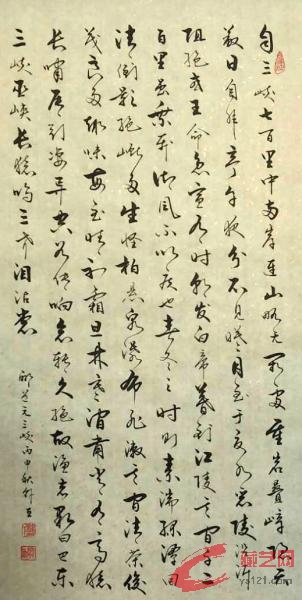 自三峡七百里中两岸连山略无阙处重岩叠嶂隐天
蔽日自非亭午夜分不见曦月至于夏水襄陵沿溯
阻绝或王命急宣有时朝发白帝暮到江陵其间千二
百里虽乘奔御风不以疾也春冬之时则素湍绿潭回
清倒影绝巘多生怪柏悬泉瀑布飞漱其间清荣峻
茂良多趣味每至晴初霜旦林寒涧肃常有高猿
长啸属引凄异空谷传响哀转久绝故渔者歌曰巴东
三峡巫峡长猿鸣三声泪沾裳
郦道元三峡丙申秋
ya121.com